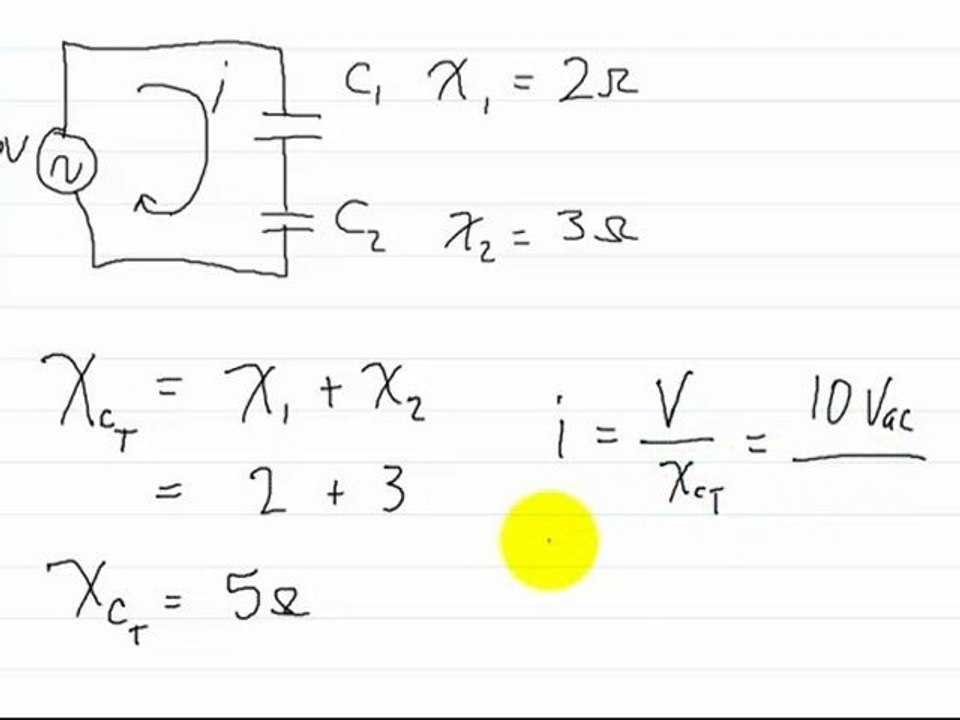 i
C₁ X₁ = 2Ω
V
C₂ X₂ = 3Ω
X_C_T = X₁ + X₂
= 2 + 3
X_C_T = 5Ω
i = V / X_C_T = 10 Vac